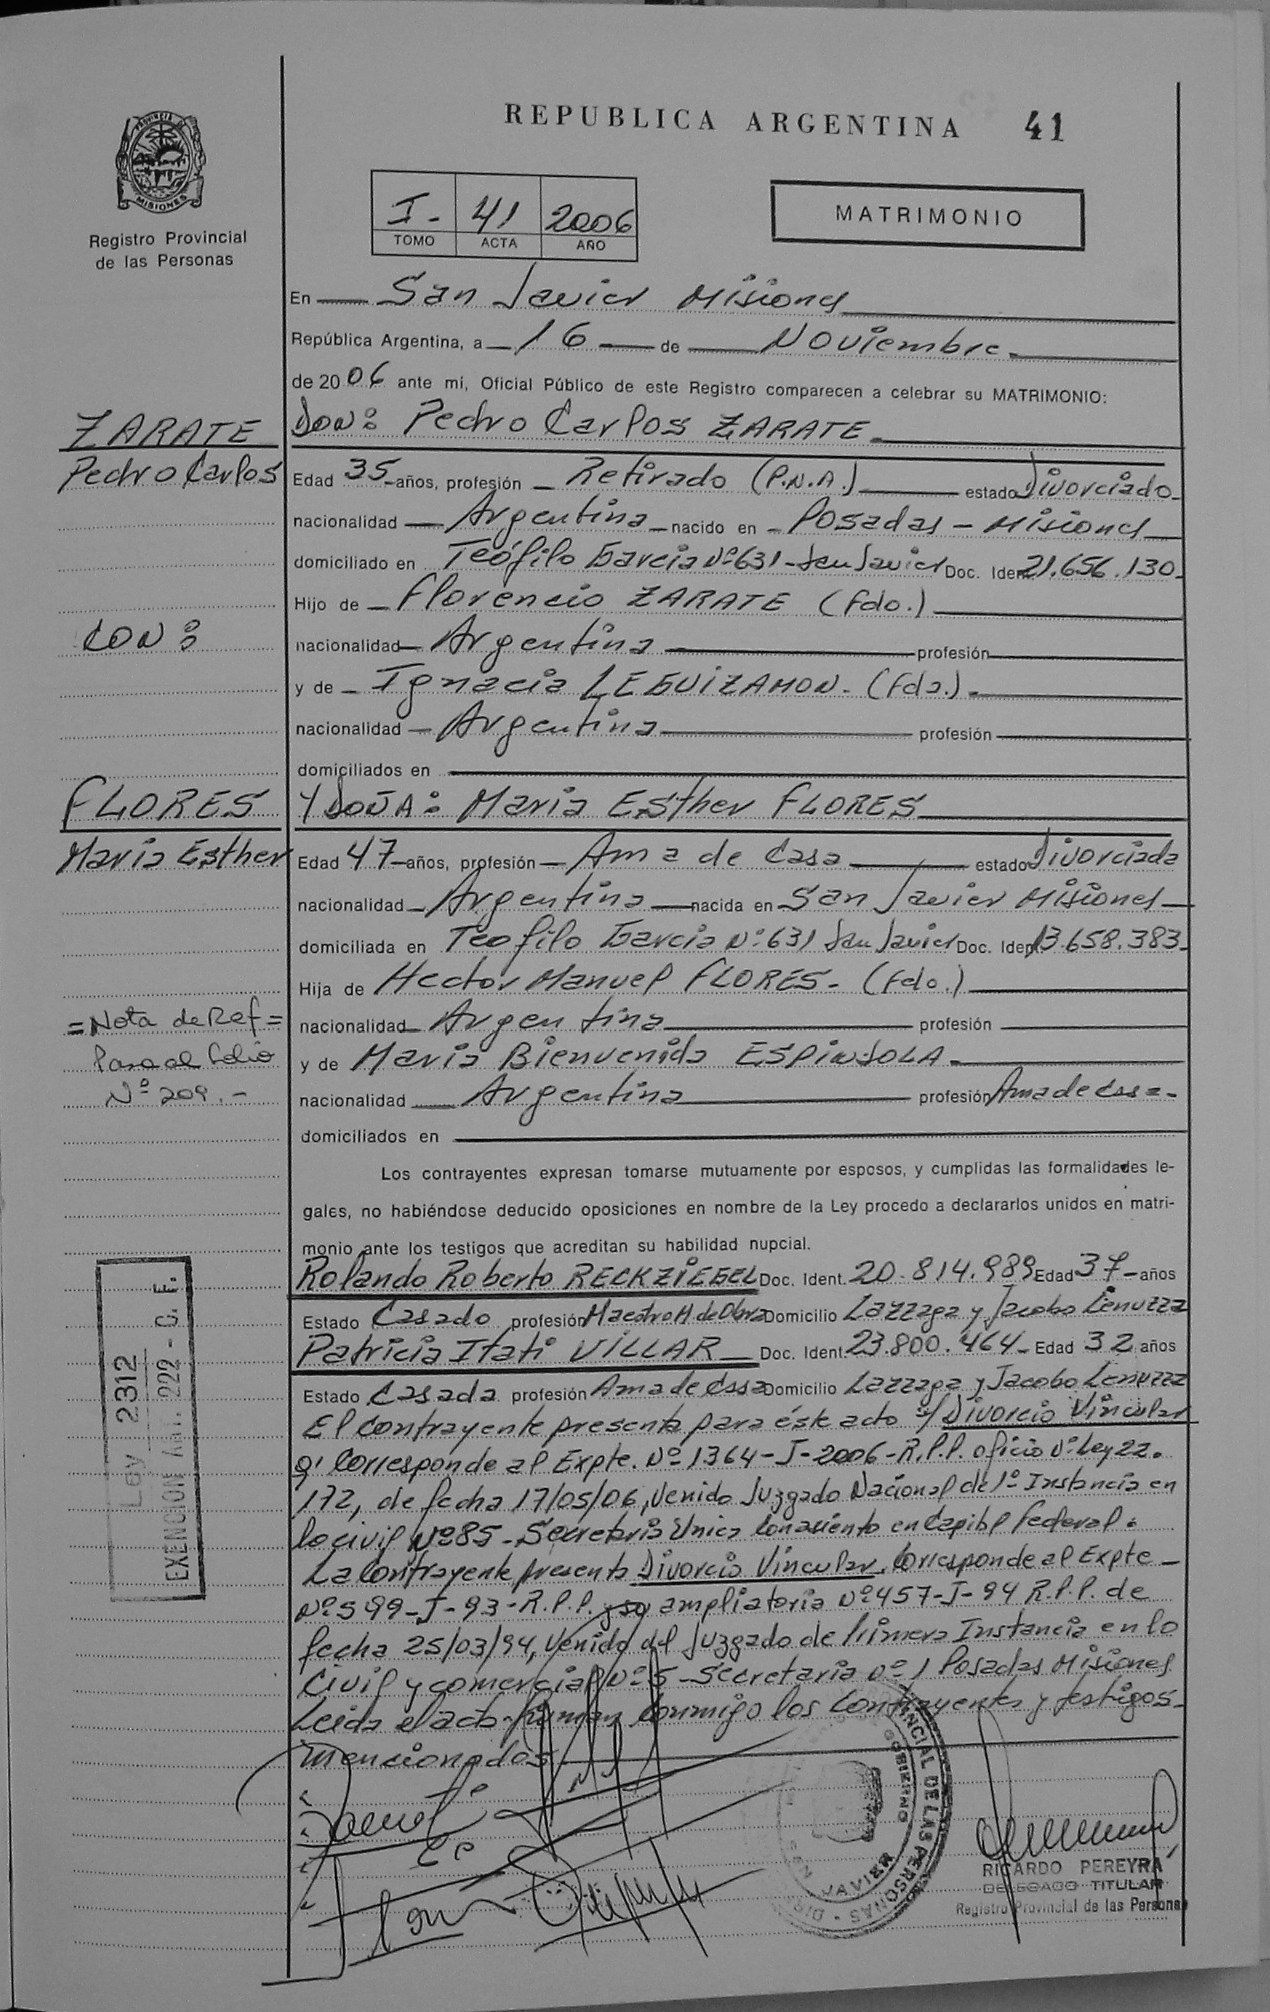 REPUBLICA ARGENTINA 41
PROVINCIA DE
MISIONES
Registro Provincial
de las Personas
I - 41 2006
TOMO ACTA AÑO
MATRIMONIO
En San Javier Misiones
República Argentina, a 16 de Noviembre
de 2006 ante mí, Oficial Público de este Registro comparecen a celebrar su MATRIMONIO:
ZARATE
Pedro Carlos
CON:
FLORES
Maria Esther
= Nota de Ref =
Pasa al folio
Nº 209.-
DON: Pedro Carlos ZARATE
Edad 35 años, profesión Retirado (P.N.A.) estado Divorciado
nacionalidad Argentina nacido en Posadas - Misiones
domiciliado en Teófilo Garcia Nº 631 - San Javier Doc. Ident. 21.656.130
Hijo de Florencio ZARATE (fdo.)
nacionalidad Argentina profesión
y de Ignacia LEGUIZAMON - (fda.)
nacionalidad Argentina profesión
domiciliados en
Y DOÑA: Maria Esther FLORES
Edad 47 años, profesión Ama de Casa estado Divorciada
nacionalidad Argentina nacida en San Javier Misiones
domiciliada en Teofilo Garcia Nº 631 San Javier Doc. Ident. 13.658.383
Hija de Hector Manuel FLORES - (fdo.)
nacionalidad Argentina profesión
y de Maria Bienvenida ESPINDOLA
nacionalidad Argentina profesión Ama de Casa
domiciliados en
Los contrayentes expresan tomarse mutuamente por esposos, y cumplidas las formalidades le-
gales, no habiéndose deducido oposiciones en nombre de la Ley procedo a declararlos unidos en matri-
monio ante los testigos que acreditan su habilidad nupcial.
Rolando Roberto RECKZIEGEL Doc. Ident. 20.814.989 Edad 37 años
Estado Casado profesión Maestro M. de Obra Domicilio Lazzaga y Jacobo Lenuzza
Patricia Itati VILLAR Doc. Ident. 23.800.464 - Edad 32 años
Estado Casada profesión Ama de Casa Domicilio Lazzaga y Jacobo Lenuzza
El contrayente presenta para éste acto s/ Divorcio Vincular
q' Corresponde al Expte. Nº 1364-J-2006-R.P.P. oficio Nº Ley 22.
172, de fecha 17/05/06, Venido Juzgado Nacional de 1º Instancia en
lo civil Nº 85 - Secretaria Unica con asiento en Capital Federal.
La Contrayente presenta Divorcio Vincular, Corresponde al Expte
Nº 599-J-93-R.P.P. y su ampliatoria Nº 457-J-94 R.P.P. de
fecha 25/03/94, Venido del Juzgado de Primera Instancia en lo
Civil y comercial Nº 5 - Secretaria Nº 1 Posadas Misiones
Leida el acto firman conmigo los Contrayentes y testigos
mencionados
Ley 2312
EXENCION Art. 222 - C. F.
RICARDO PEREYRA
DELEGADO TITULAR
Registro Provincial de las Personas